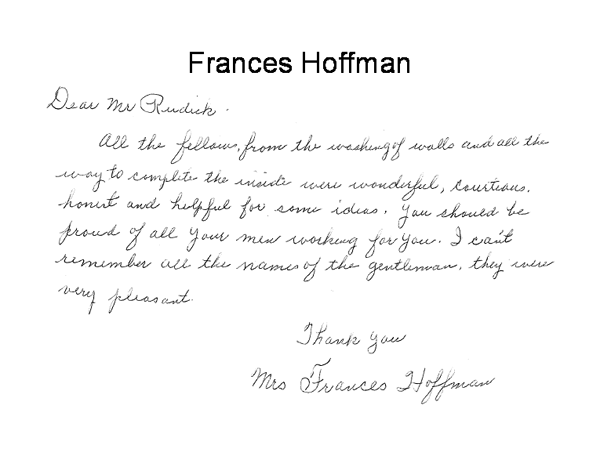 Frances Hoffman
Dear Mr Rudick.
All the fellows, from the washing of walls and all the
way to complete the inside were wonderful, courtious.
honest and helpful for some ideas. You should be
proud of all your men working for you. I can't
remember all the names of the gentleman, they were
very pleasant.
Thank you
Mrs Frances Hoffman